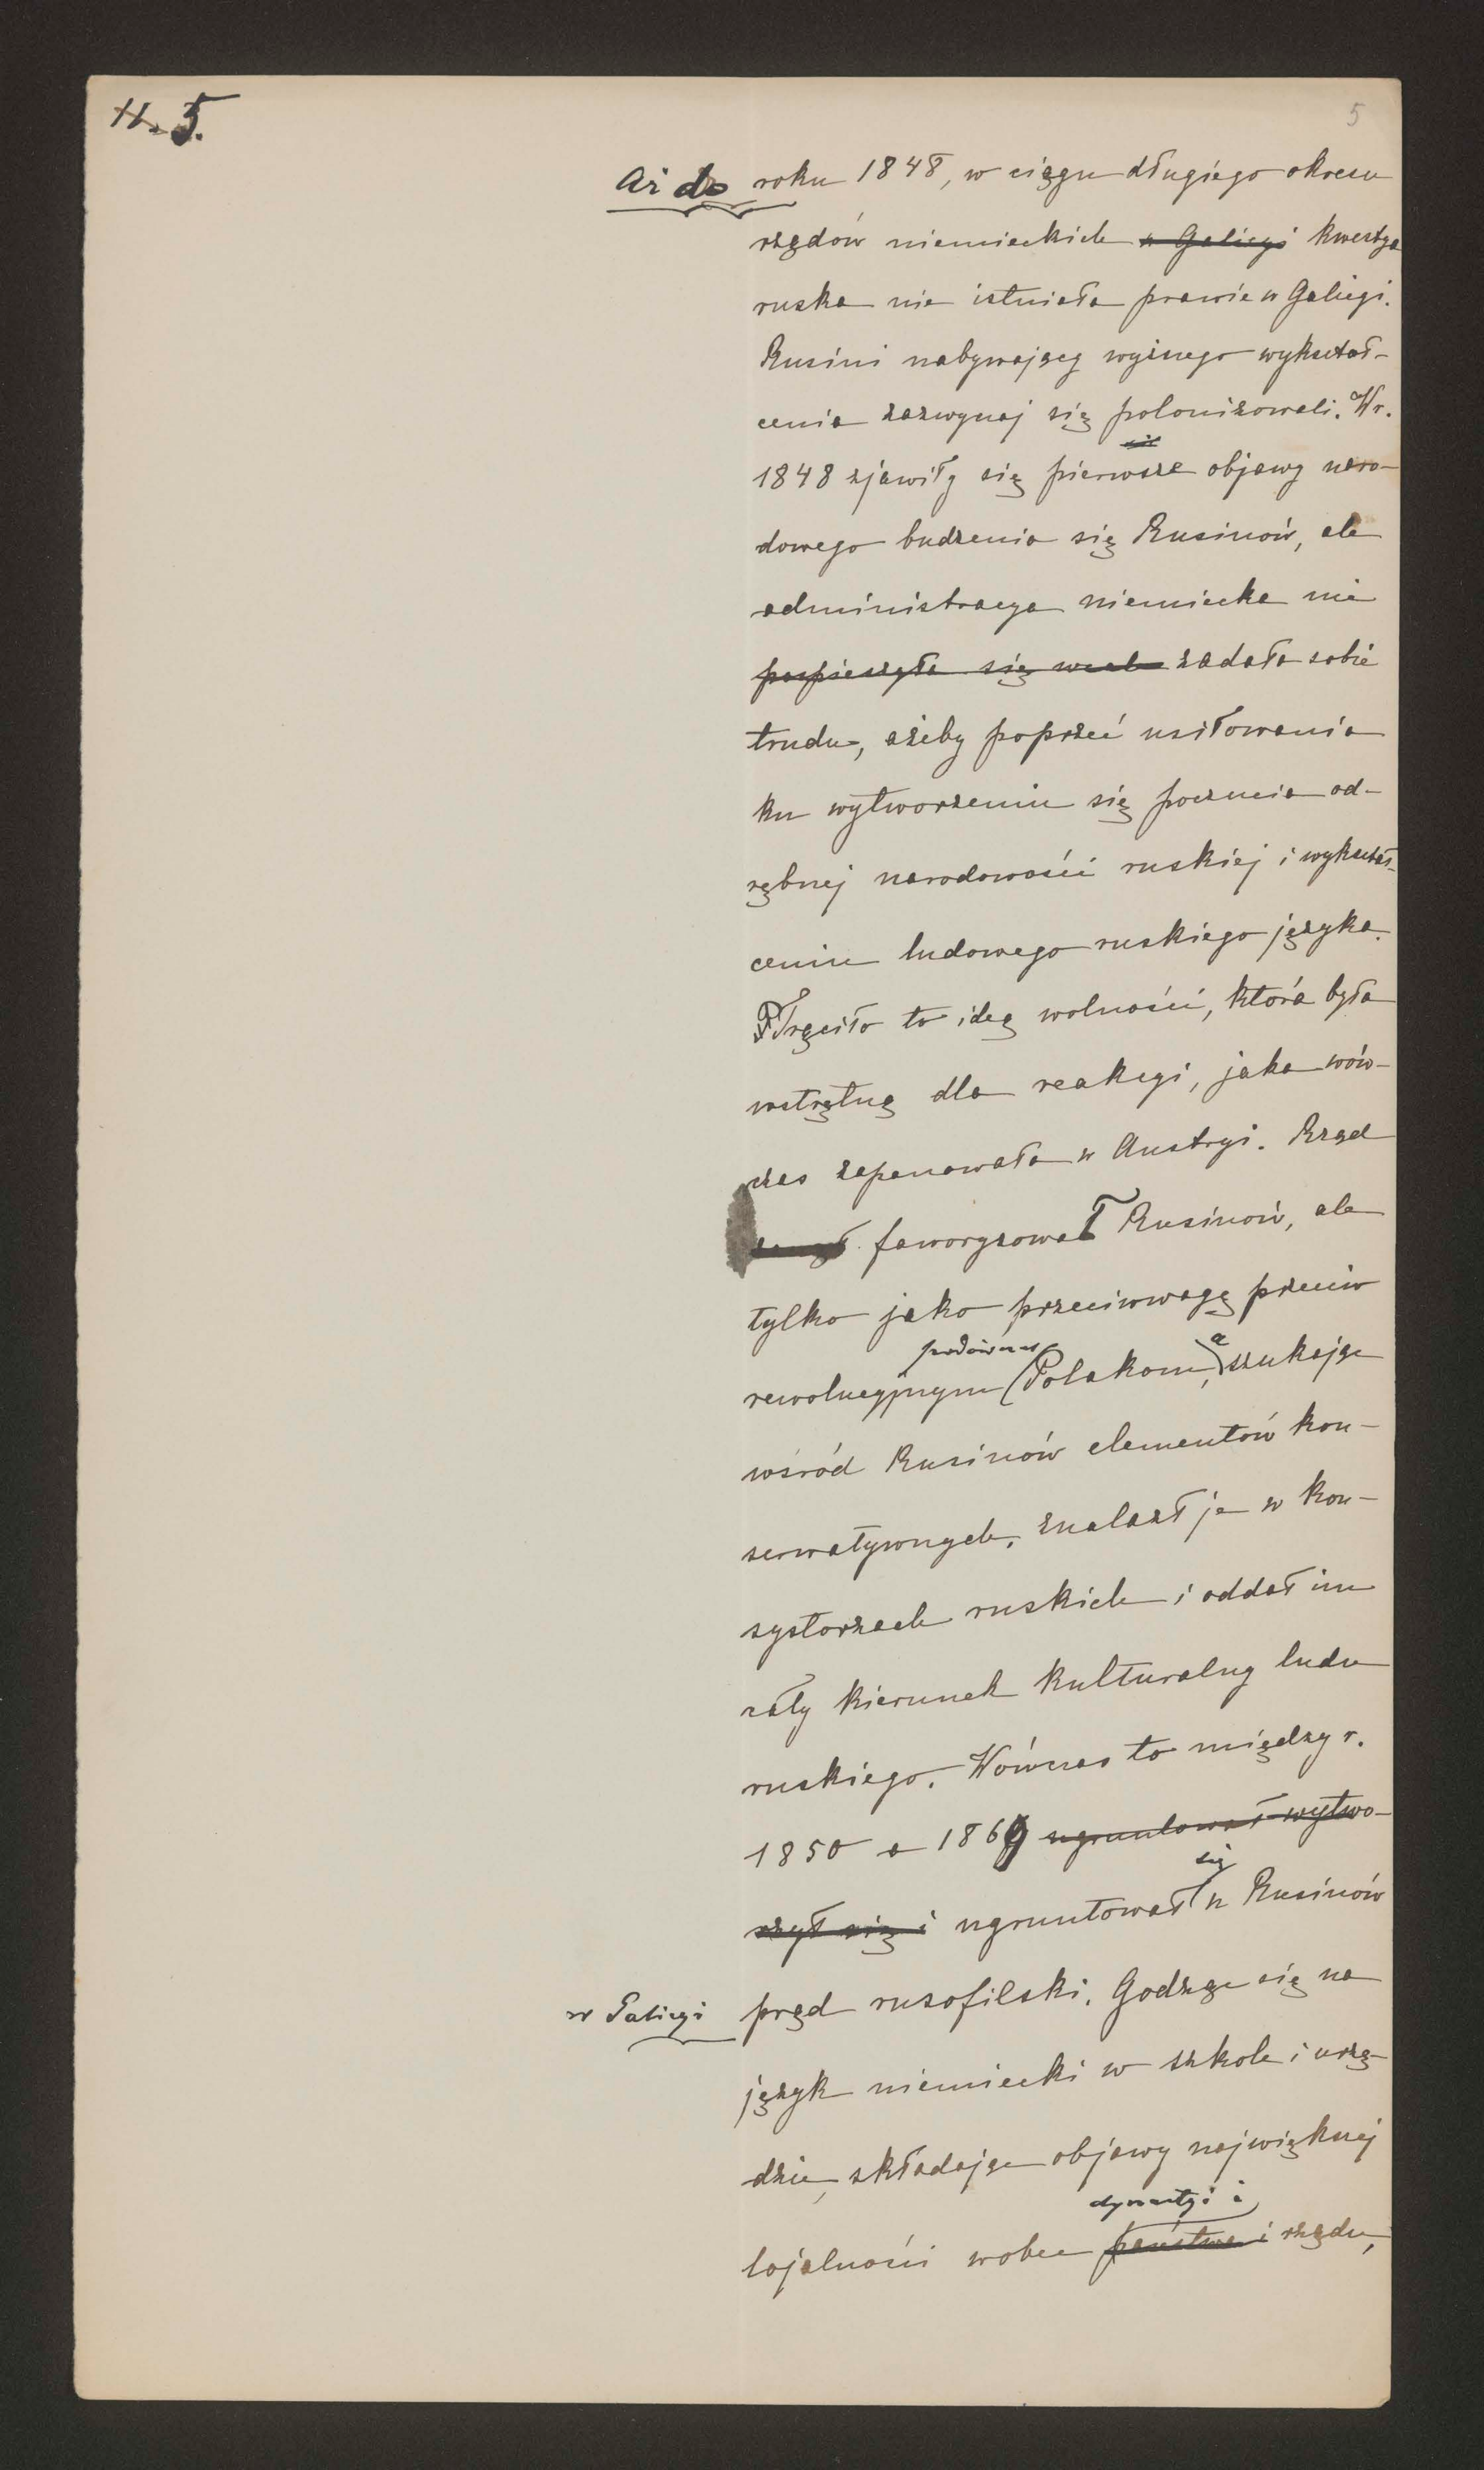 11. 5.
5
Aż do roku 1848, w ciągu długiego okresu
rządów niemieckich w Galicyi kwestya
ruska nie istniała prawie w Galicyi.
Rusini nabywający wyższego wykształ-
cenia zazwyczaj się polonizowali. W r.
1848 zjawiły się pierwsze objawy naro-
dowego budzenia się Rusinów, ale
administracya niemiecka nie
pospieszyła się wcale zadała sobie
trudu, ażeby poprzeć usiłowania
ku wytworzeniu się poczucia od-
rębnej narodowości ruskiej i wykształ-
ceniu ludowego ruskiego języka.
Trąciło to ideą wolności, która była
wstrętną dla reakcyi, jaka wów-
czas zapanowała w Austryi. Rząd
faworyzował Rusinów, ale
tylko jako przeciwwagę przeciw
podówczas a
rewolucyjnym Polakom, szukając
wśród Rusinów elementów kon-
serwatywnych, znalazł je w kon-
systorzach ruskich i oddał im
cały kierunek kulturalny ludu
ruskiego. Wówczas to między r.
1850 a 1869 ugruntował wytwo-
rzył się i ugruntował się u Rusinów
w Galicyi prąd rusofilski. Godząc się na
język niemiecki w szkole i urzę-
dzie, składając objawy największej
dynastyi i
lojalności wobec państwa i rządu,